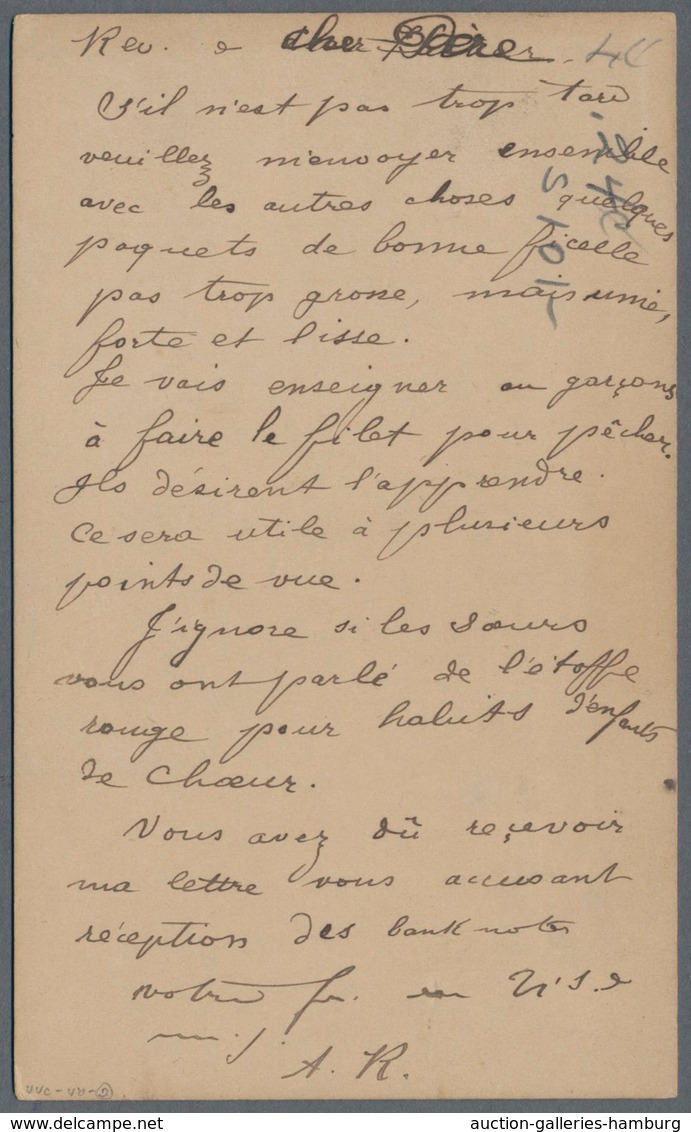 Rev. e cher Père
S'il n'est pas trop tard
veuillez m'envoyer ensemble
avec les autres choses quelques
paquets de bonne ficelle
pas trop grosse, mais unie,
forte et lisse.
Je vais enseigner au garçons
à faire le filet pour pêcher.
Ils désirent l'apprendre.
Ce sera utile à plusieurs
points de vue.
J'ignore si les Sœurs
vous ont parlé de l'étoffe
rouge pour habits d'enfants
de Chœur.
Vous avez dû reçevoir
ma lettre vous accusant
réception des bank notes
votre fr. en N.S. e
A. R.
auction-galleries-hamburg